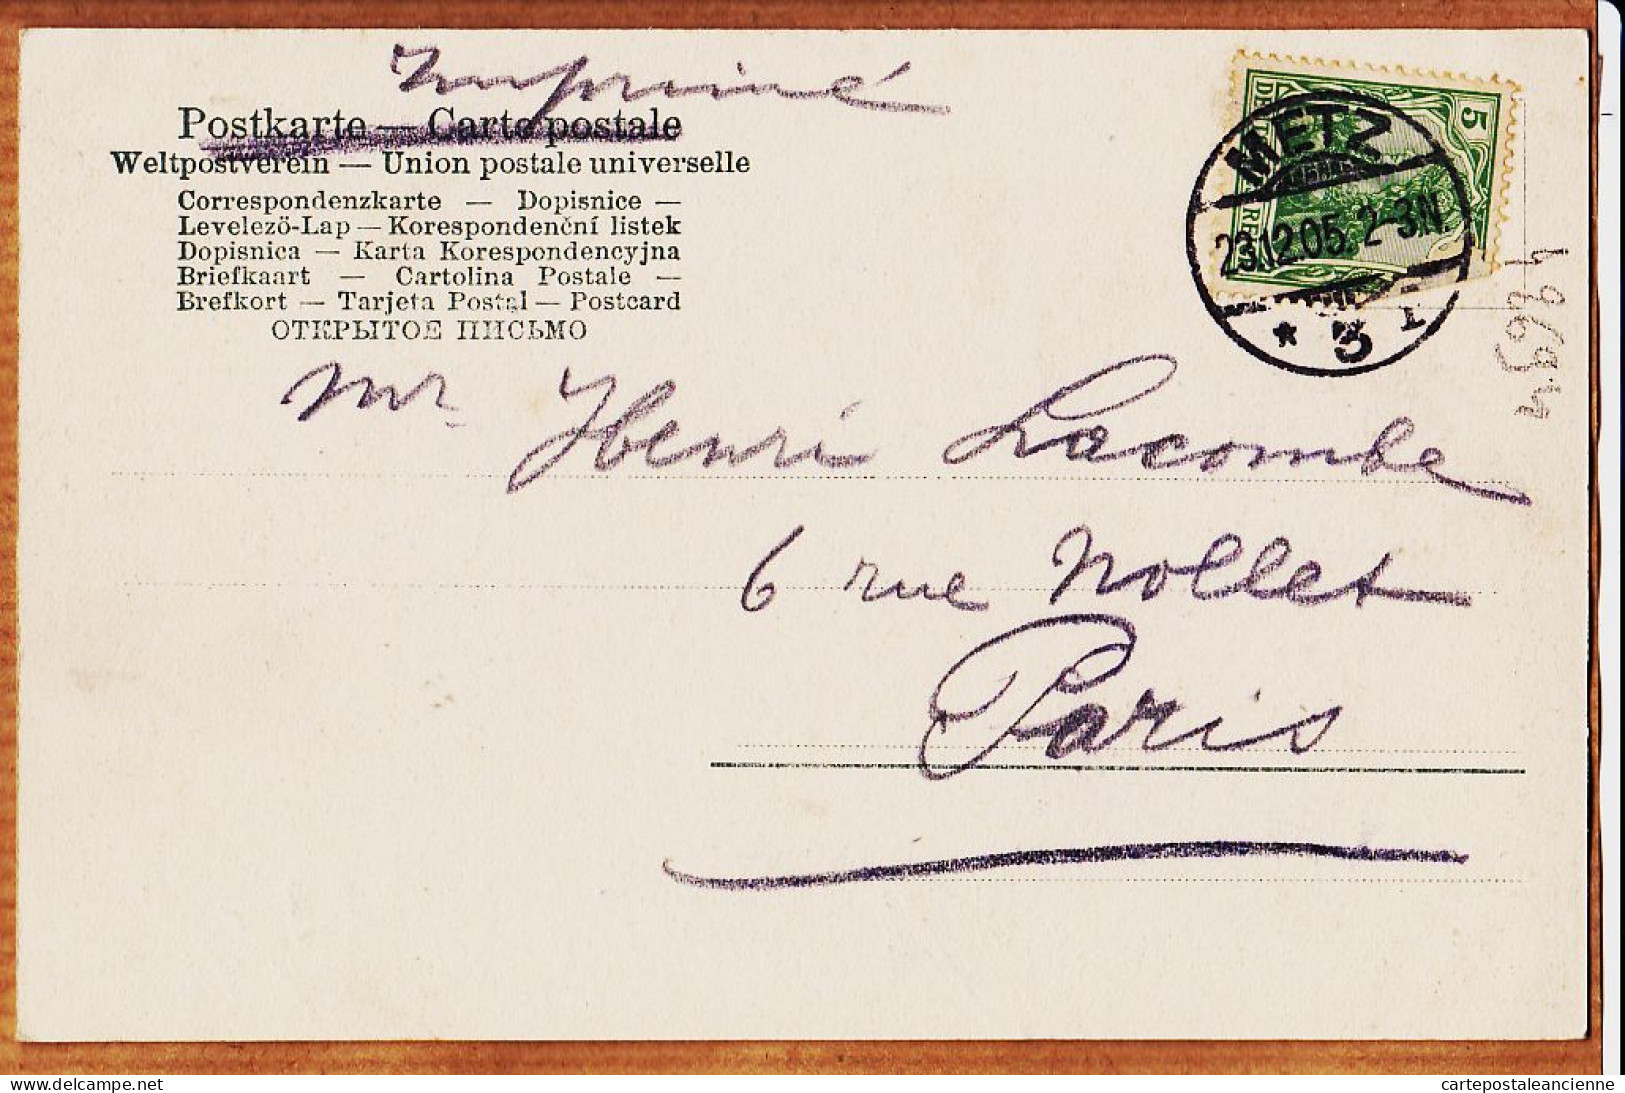 Imprimé
Postkarte — Carte postale
Weltpostverein — Union postale universelle
Correspondenzkarte — Dopisnice —
Levelező-Lap — Korespondenční listek
Dopisnica — Karta Korespondencyjna
Briefkaart — Cartolina Postale —
Brefkort — Tarjeta Postal — Postcard
ОТКРЫТОЕ ПИСЬМО
5
METZ
23.12.05. 2-3.N.
* 3
Mr Henri Lacombe
6 rue Nollet
Paris
delcampe.net
cartepostaleancienne